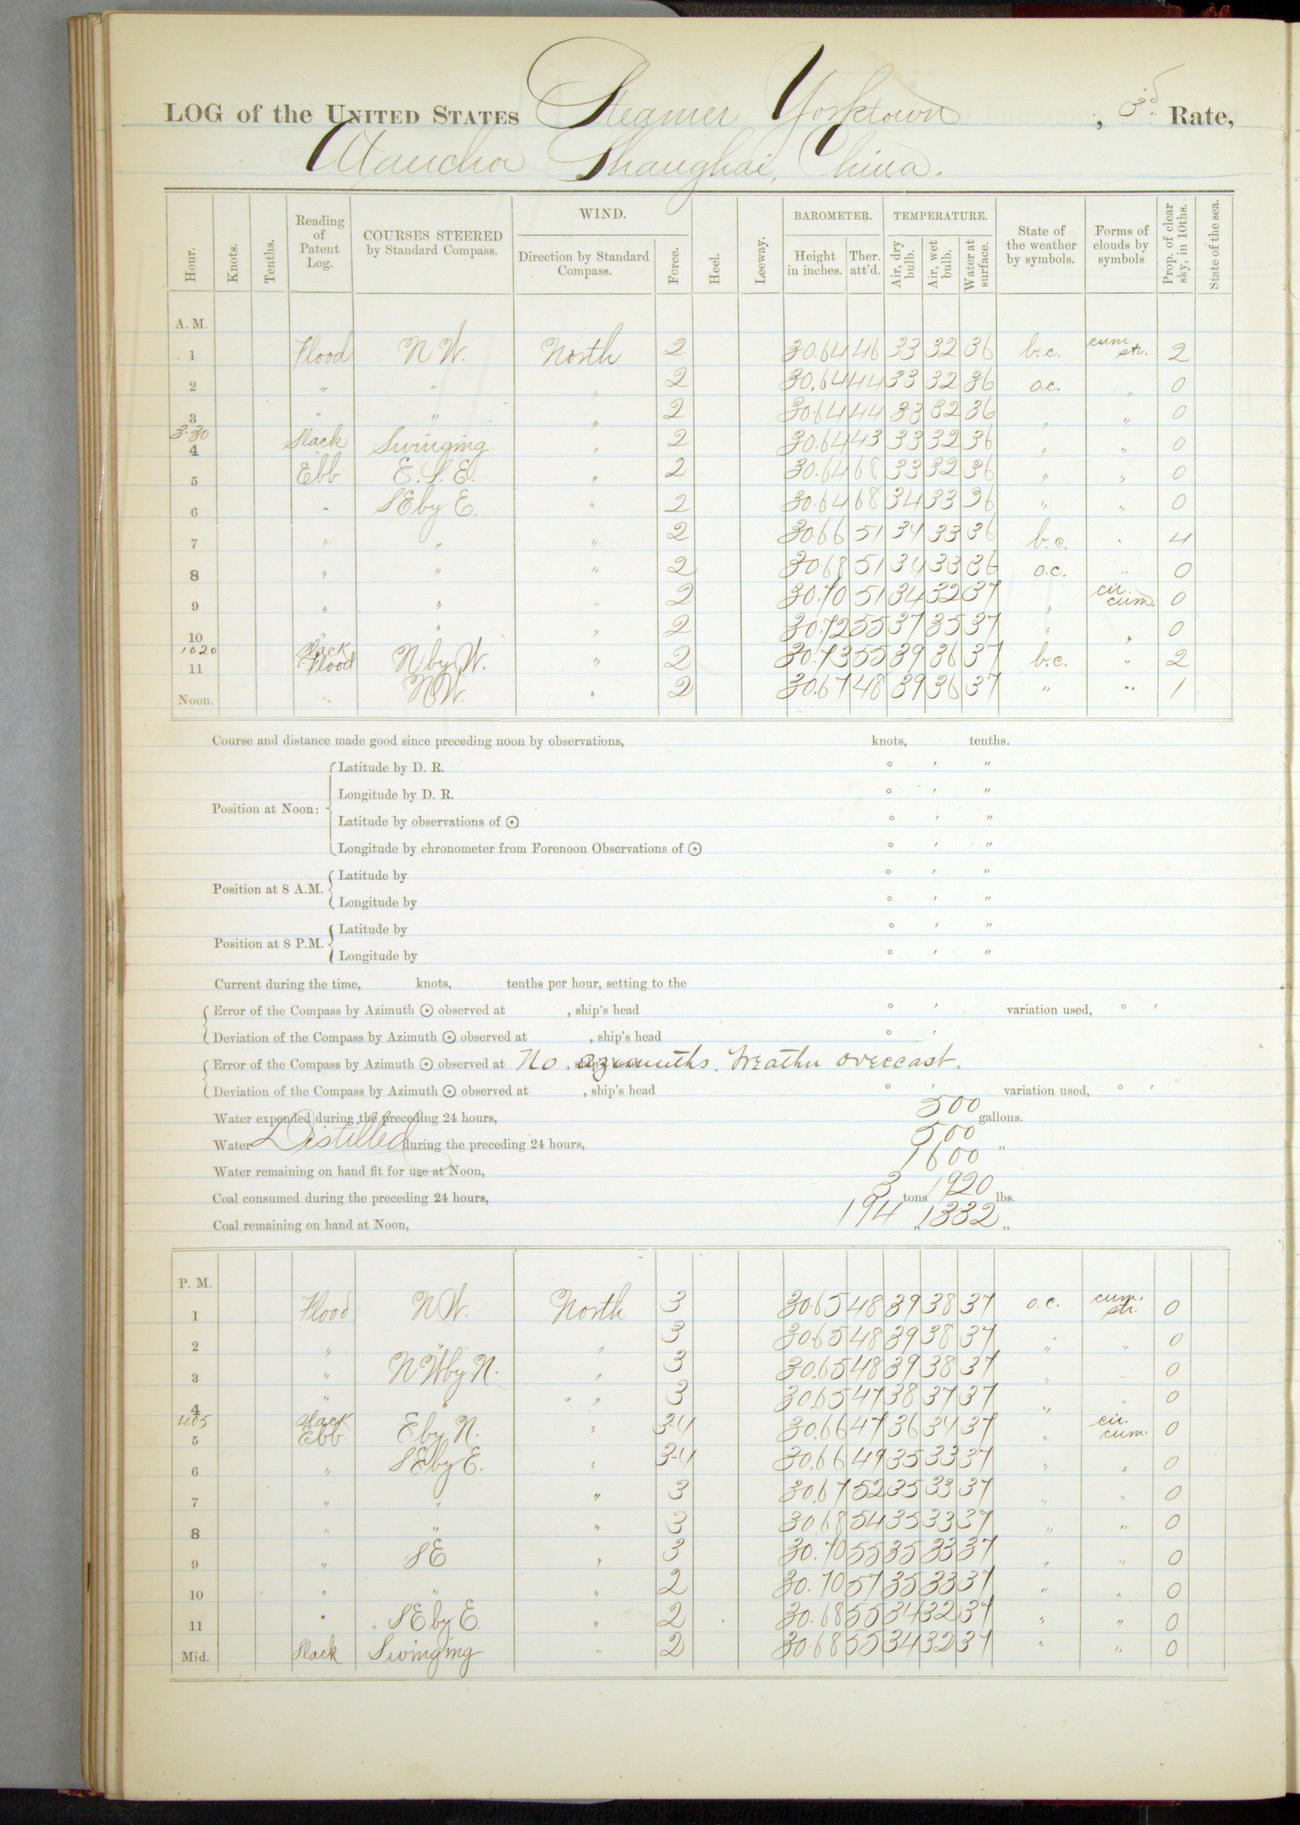 LOG of the UNITED STATES Steamer Yorktown, 3d Rate,
At anchor Shanghai, China.
Hour. Knots. Tenths. Reading of Patent Log. COURSES STEERED by Standard Compass. WIND. Direction by Standard Compass. Force. Heel. Leeway. BAROMETER. Height in inches. Ther. att'd. TEMPERATURE. Air, dry bulb. Air, wet bulb. Water at surface. State of the weather by symbols. Forms of clouds by symbols Prop. of clear sky, in 10ths. State of the sea.
A. M.
1 Flood N W. North 2 30.64 46 33 32 36 b.c. cum. str. 2
2 " " " 2 30.64 44 33 32 36 o.c. " 0
3 " " " 2 30.64 44 33 32 36 " " 0
3.30
4 Slack Swinging " 2 30.64 43 33 32 36 " " 0
5 Ebb E. S. E. " 2 30.64 68 33 32 36 " " 0
6 " SE by E. " 2 30.64 68 34 33 36 " " 0
7 " " " 2 30.66 51 34 33 36 b.c. " 4
8 " " " 2 30.68 51 34 33 36 o.c. " 0
9 " " " 2 30.70 51 34 32 37 " cir. cum. 0
10 " " " 2 30.72 55 37 35 37 " " 0
10 20 Slack
11 Flood N by W. " 2 30.73 55 39 36 37 b.c. " 2
Noon. " NW. " 2 30.67 48 39 36 37 " " 1
Course and distance made good since preceding noon by observations, knots, tenths.
Position at Noon: Latitude by D. R. ° ′ ″
Longitude by D. R. ° ′ ″
Latitude by observations of ☉ ° ′ ″
Longitude by chronometer from Forenoon Observations of ☉ ° ′ ″
Position at 8 A.M. Latitude by ° ′ ″
Longitude by ° ′ ″
Position at 8 P.M. Latitude by ° ′ ″
Longitude by ° ′ ″
Current during the time, knots, tenths per hour, setting to the
Error of the Compass by Azimuth ☉ observed at , ship's head ° ′ variation used, ° ′
Deviation of the Compass by Azimuth ☉ observed at , ship's head ° ′
Error of the Compass by Azimuth ☉ observed at No azimuths. Weather overcast.
Deviation of the Compass by Azimuth ☉ observed at , ship's head ° ′ variation used, ° ′
Water expended during the preceding 24 hours, 500 gallons.
Water Distilled during the preceding 24 hours, 500 "
Water remaining on hand fit for use at Noon, 1600
Coal consumed during the preceding 24 hours, 3 tons 1920 lbs.
Coal remaining on hand at Noon, 194 " 1332 "
P. M.
1 Flood NW. North 3 30.65 48 39 38 37 o.c. cum. str. 0
2 " " " 3 30.65 48 39 38 37 " " 0
3 " NW by N. " 3 30.65 48 39 38 37 " " 0
4 " " " 3 30.65 47 38 37 37 " " 0
4.05 Slack
5 Ebb. E by N. " 3-4 30.66 47 36 34 37 " cir. cum. 0
6 " SE by E. " 3-4 30.66 49 35 33 37 " " 0
7 " " " 3 30.67 52 35 33 37 " " 0
8 " " " 3 30.68 54 35 33 37 " " 0
9 " SE " 3 30.70 55 35 33 37 " " 0
10 " " " 2 30.70 57 35 33 37 " " 0
11 " SE by E. " 2 30.68 55 34 32 37 " " 0
Mid. Slack Swinging " 2 30.68 55 34 32 37 " " 0